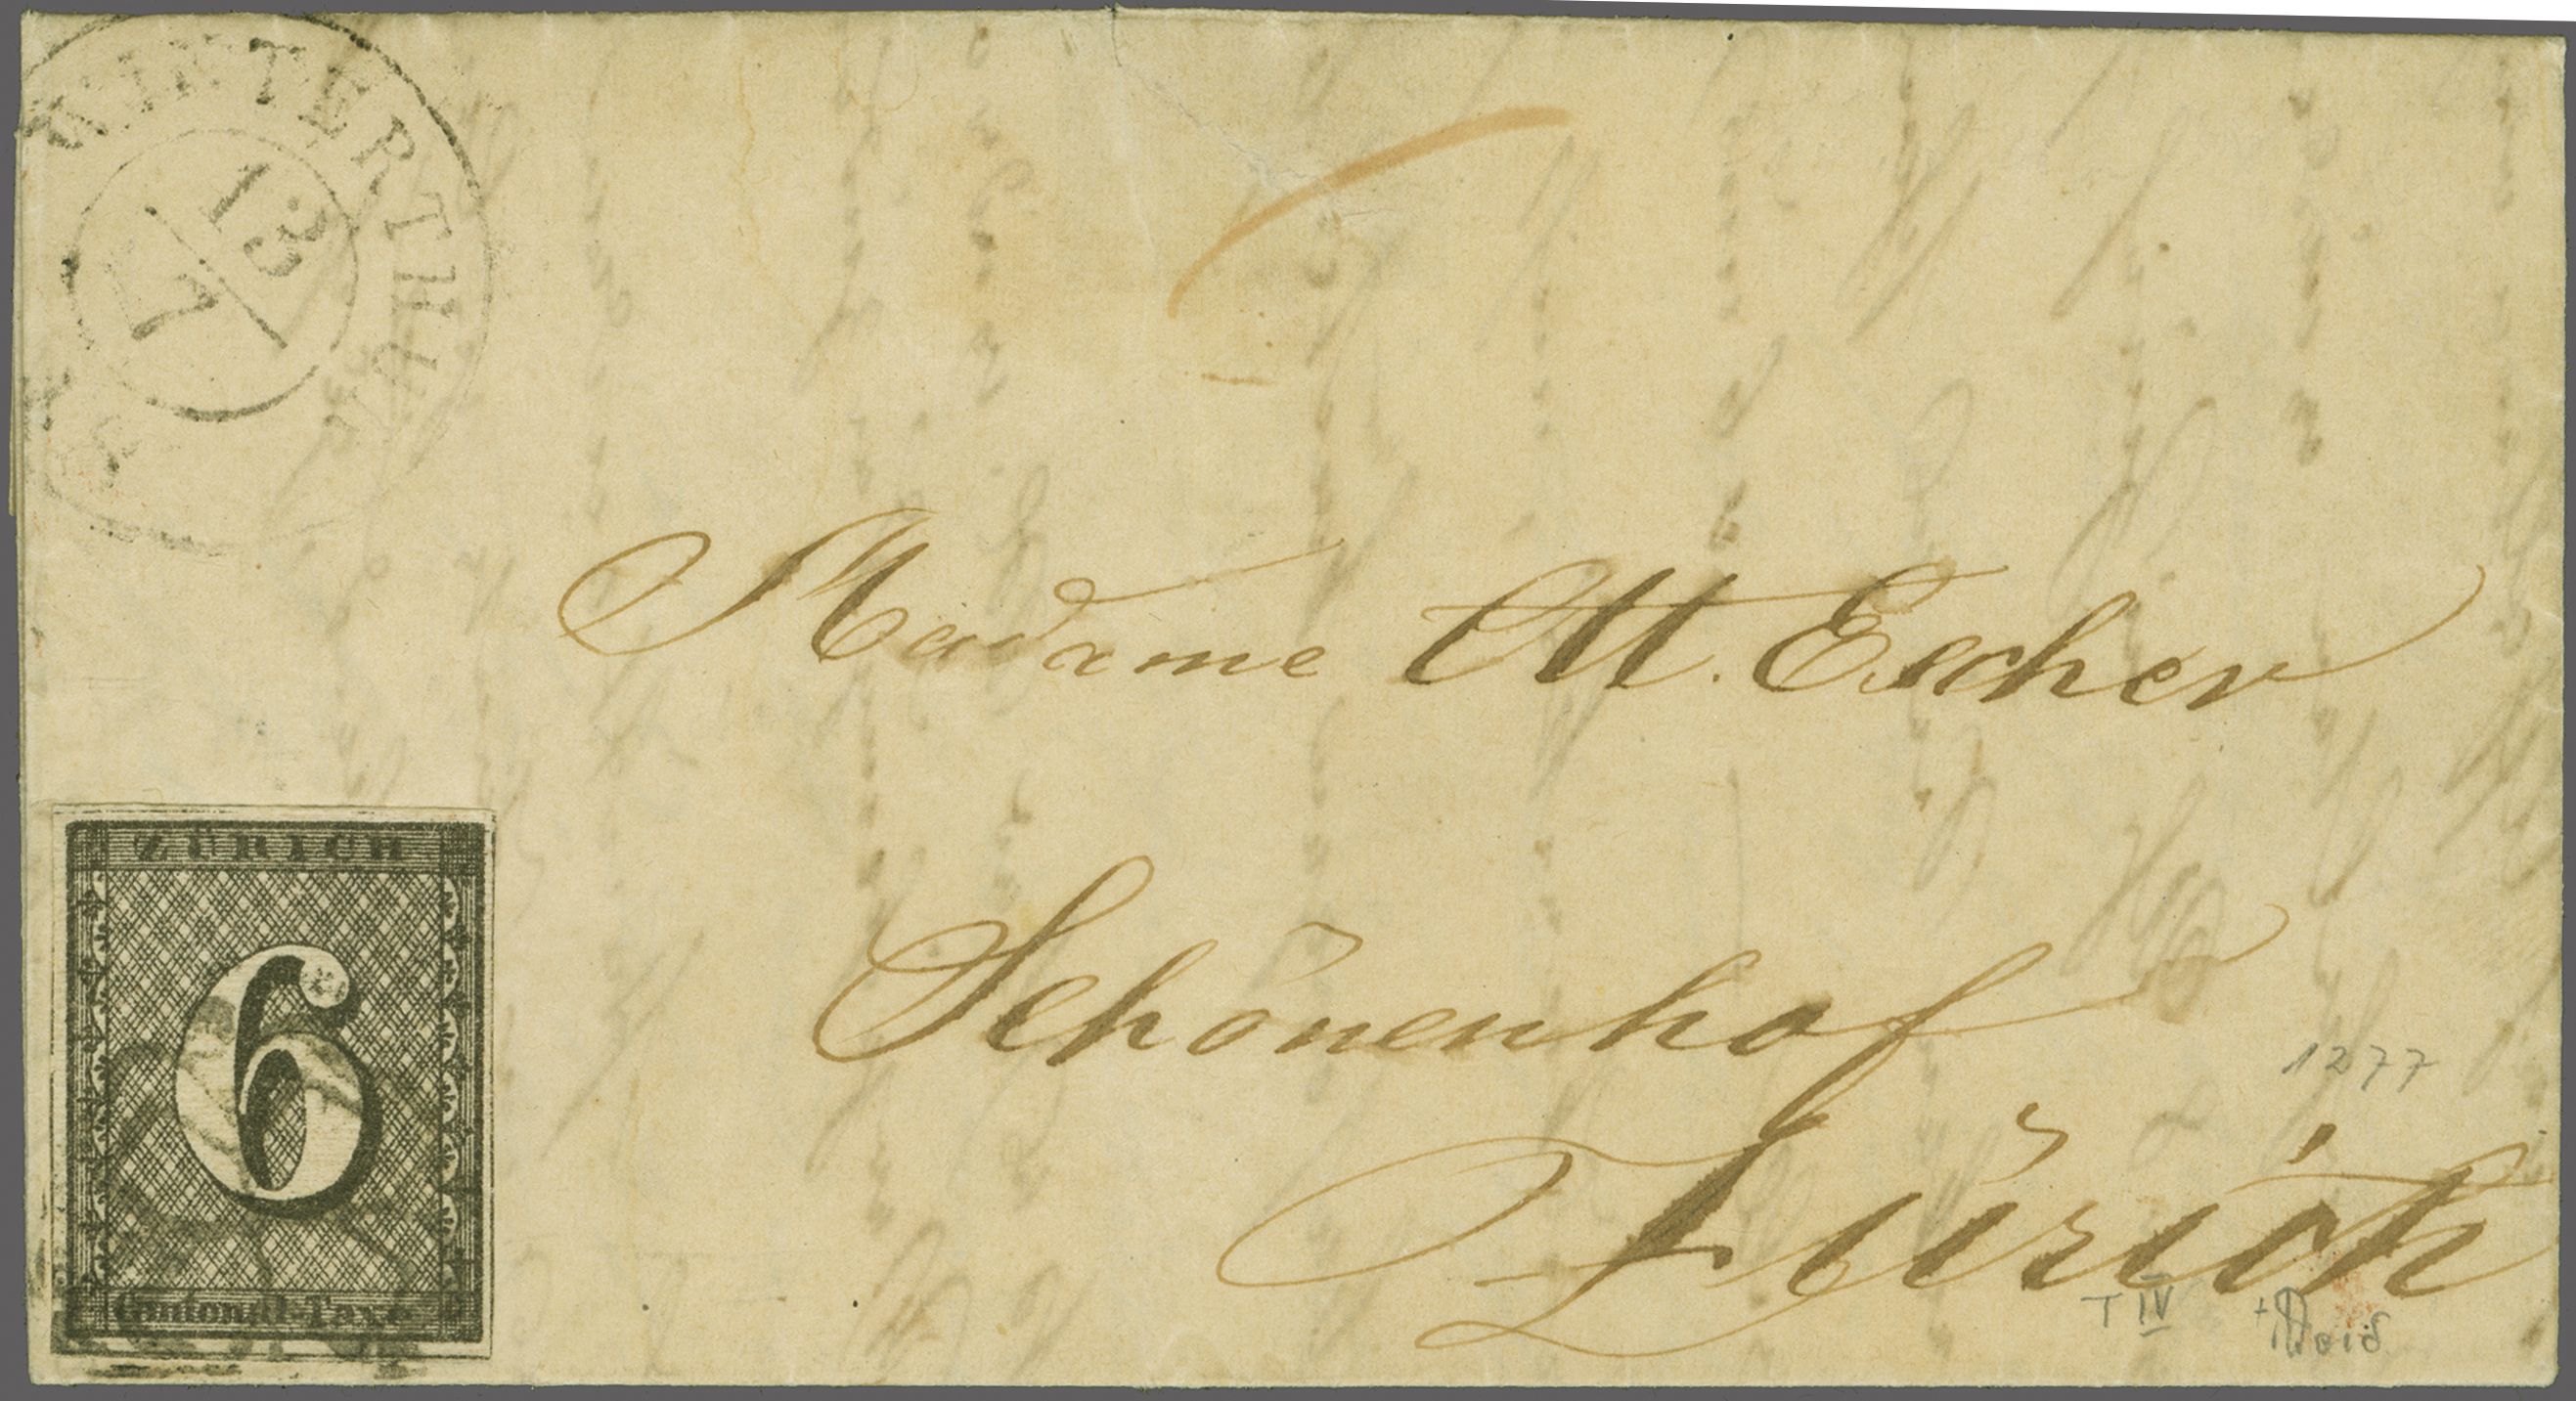 WINTERTHUR
13
7
Madame Ott. Escher
Schönenhof
Zürich
ZÜRICH
6
Cantonal-Taxe
1277
T IV